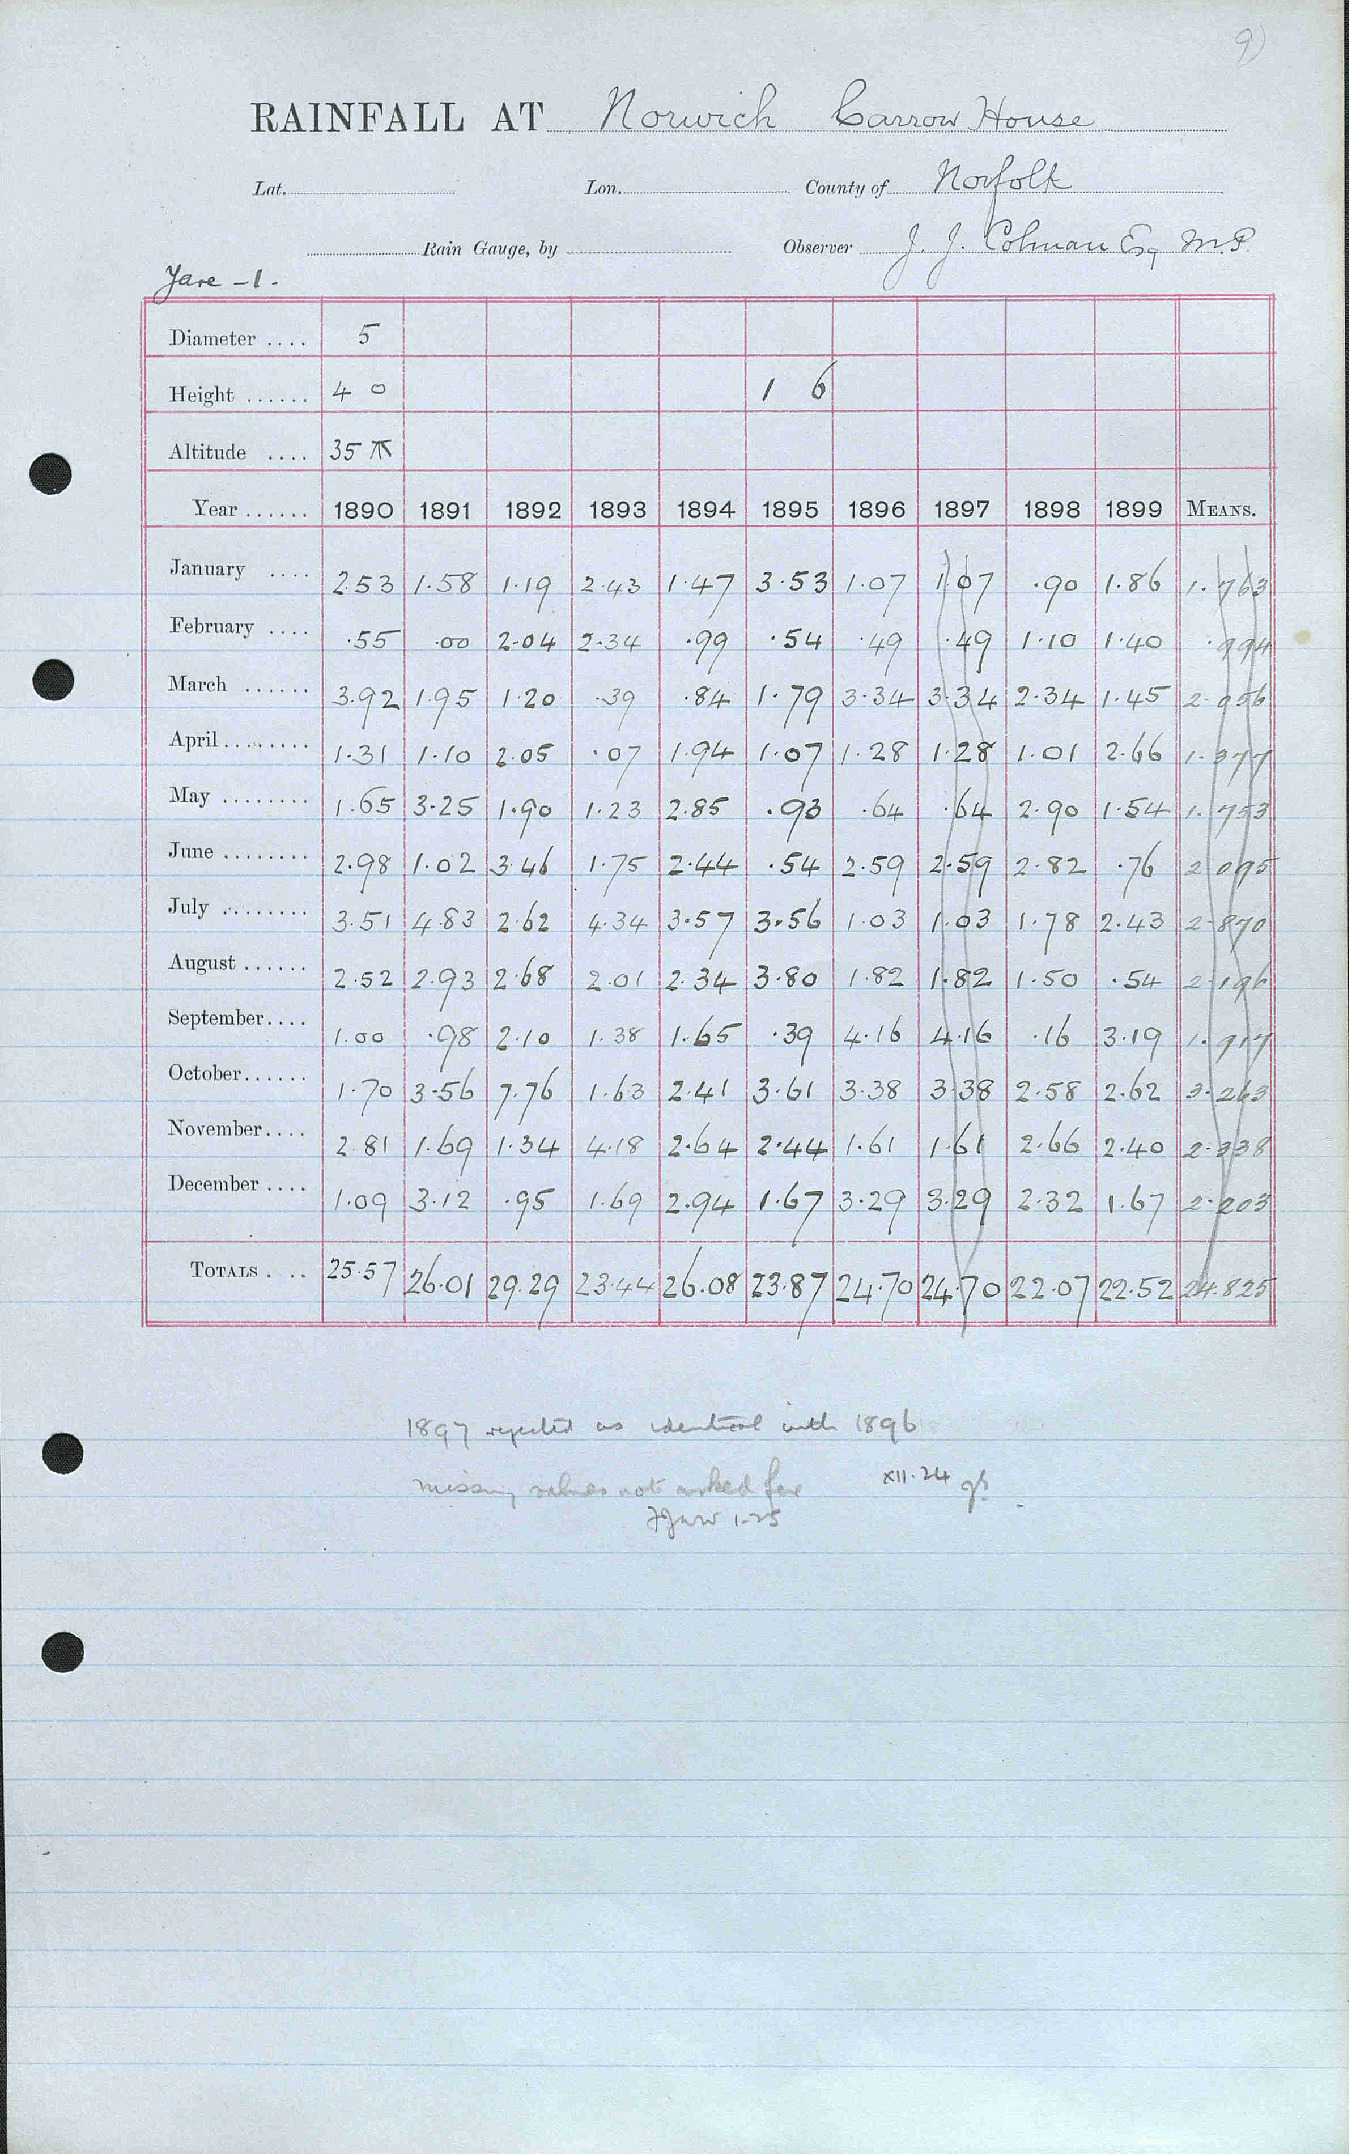 9)
RAINFALL AT Norwich Carrow House
Lat. Lon. County of Norfolk
Rain Gauge, by Observer J. J. Colman Esq M.P.
Yare - 1.
Diameter .... 5
Height ...... 4 0 1 6
Altitude .... 35
Year ...... 1890 1891 1892 1893 1894 1895 1896 1897 1898 1899 MEANS.
January .... 2.53 1.58 1.19 2.43 1.47 3.53 1.07 1.07 .90 1.86 1.763
February .... .55 .00 2.04 2.34 .99 .54 .49 .49 1.10 1.40 .994
March ...... 3.92 1.95 1.20 .39 .84 1.79 3.34 3.34 2.34 1.45 2.056
April ........ 1.31 1.10 2.05 .07 1.94 1.07 1.28 1.28 1.01 2.66 1.377
May ........ 1.65 3.25 1.90 1.23 2.85 .93 .64 .64 2.90 1.54 1.753
June ........ 2.98 1.02 3.46 1.75 2.44 .54 2.59 2.59 2.82 .76 2.095
July ........ 3.51 4.83 2.62 4.34 3.57 3.56 1.03 1.03 1.78 2.43 2.870
August ...... 2.52 2.93 2.68 2.01 2.34 3.80 1.82 1.82 1.50 .54 2.196
September.... 1.00 .98 2.10 1.38 1.65 .39 4.16 4.16 .16 3.19 1.917
October...... 1.70 3.56 7.76 1.63 2.41 3.61 3.38 3.38 2.58 2.62 3.263
November.... 2.81 1.69 1.34 4.18 2.64 2.44 1.61 1.61 2.66 2.40 2.338
December .... 1.09 3.12 .95 1.69 2.94 1.67 3.29 3.29 2.32 1.67 2.203
TOTALS . .. 25.57 26.01 29.29 23.44 26.08 23.87 24.70 24.70 22.07 22.52 24.825
1897 rejected as identical with 1896
missing values not asked for XII.24
1.25